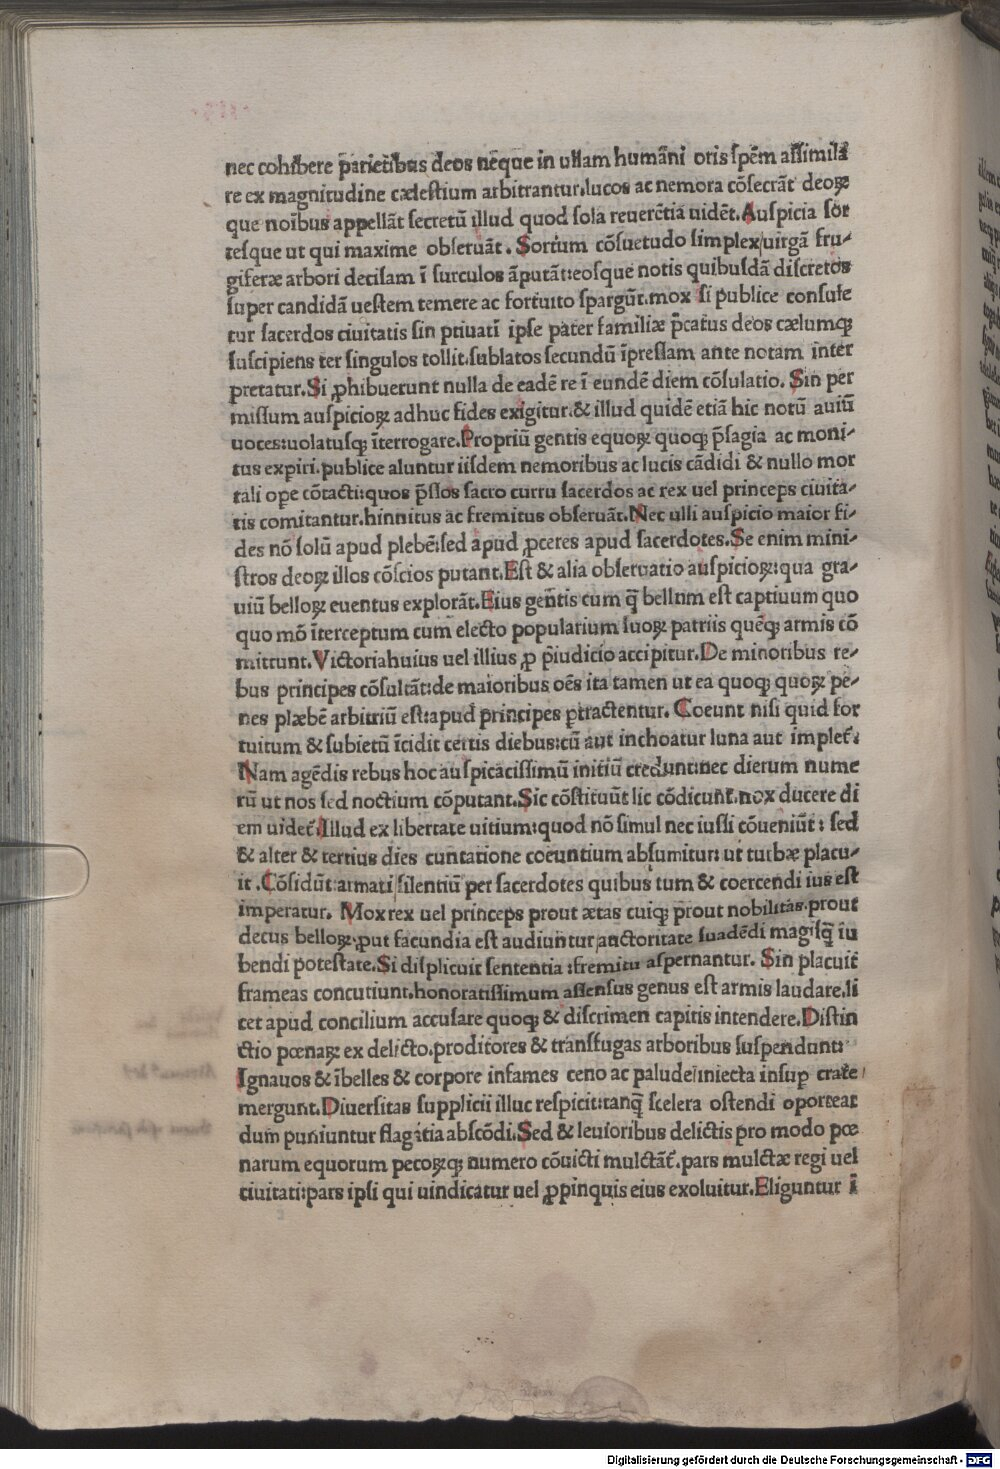 nec cohibere p̄arietibus deos neq̄ue in ullam humāni oris ſpēm aſſimila
re ex magnitudine cæleſtium arbitrantur.lucos ac nemora cōſecrāt deoꝝ
que noībus appellāt ſecretū illud quod ſola reuerētia uidēt.Auſpicia ſor
teſque ut qui maxime obſeruāt . Sortium cōſuetudo ſimplex/uirgā fru⸗
giferæ arbori deciſam ī ſurculos āputāt:eoſque notis quibuſdā diſcretos
ſuper candidā ueſtem temere ac fortuito ſpargūt.mox ſi publice conſule
tur ſacerdos ciuitatis ſin priuatī ipſe pater familiæ p̄catus deos cælumqꝫ
ſuſcipiens ter ſingulos tollit.ſublatos ſecundū īpreſſam ante notam inter
pretatur.Si ꝓhibuerunt nulla de eadē re ī eundē diem cōſulatio. Sin per
miſſum auſpicioꝝ adhuc fides exigitur.& illud quidē etiā hic notū auiū
uoces:uolatuſqꝫ īterrogare.Propriū gentis equoꝝ quoqꝫ p̄ſagia ac moni⸗
tus expiri.publice aluntur iiſdem nemoribus ac lucis cādidi & nullo mor
tali ope cōtacti:quos p̄ſſos ſacro curru ſacerdos ac rex uel princeps ciuita⸗
tis comitantur.hinnitus ac fremitus obſeruāt.Nec ulli auſpicio maior fi⸗
des nō ſolū apud plebē:ſed apud ꝓceres apud ſacerdotes.Se enim mini⸗
ſtros deoꝝ illos cōſcios putant.Eſt & alia obſeruatio auſpicioꝝ:qua gra⸗
uiū belloꝝ euentus explorāt.Eius gentis cum q̄ bellum eſt captiuum quo
quo mō īterceptum cum electo popularium ſuoꝝ patriis quēqꝫ armis cō
mittunt.Victoriahuius uel illius ꝓ p̄iudicio accipitur.De minoribus re⸗
bus principes cōſultāt:de maioribus oēs ita tamen ut ea quoqꝫ quoꝝ pe⸗
nes plæbē arbitriū eſt:apud principes ꝑtractentur. Coeunt niſi quid for
tuitum & ſubietū īcidit certis diebus:cū aut inchoatur luna aut implet̄:
Nam agēdis rebus hoc auſpicaciſſimū initiū credunt:nec dierum nume
rū ut nos ſed noctium cōputant.Sic cōſtituūt ſic cōdicunt̄.nox ducere di
em uidet̄.Illud ex libertate uitium:quod nō ſimul nec iuſſi cōueniūt : ſed
& alter & tertius dies cuntatione coeuntium abſumitur: ut turbæ placu⸗
it .Cōſidūt:armati/ſilentiū per ſacerdotes quibus tum & coercendi ius eſt
imperatur. Mox rex uel princeps prout ætas cuiqꝫ prout nobilitas.prout
decus belloꝝ.ꝓut facundia eſt audiuntur/auctoritate ſuadēdi magiſq̄ iu
bendi poteſtate.Si diſplicuit ſententia :fremitu aſpernantur. Sin placuit
frameas concutiunt.honoratiſſimum aſſenſus genus eſt armis laudare.li
cet apud concilium accuſare quoqꝫ & diſcrimen capitis intendere.Diſtin
ctio pœnaꝝ ex delicto.proditores & tranſfugas arboribus ſuſpendunt:
Ignauos & ībelles & corpore infames ceno ac palude/iniecta inſuꝑ crate
mergunt.Diuerſitas ſupplicii illuc reſpicit:tanq̄ ſcelera oſtendi oporteat
dum puniuntur flagitia abſcōdi.Sed & leuioribus delictis pro modo pœ
narum equorum pecoꝝqꝫ numero cōuicti mulctāt̄.pars mulctæ regi uel
ciuitati:pars ipſi qui uindicatur uel ꝓpinquis eius exoluitur.Eliguntur ī
Digitalisierung gefördert durch die Deutsche Forschungsgemeinschaft - DFG